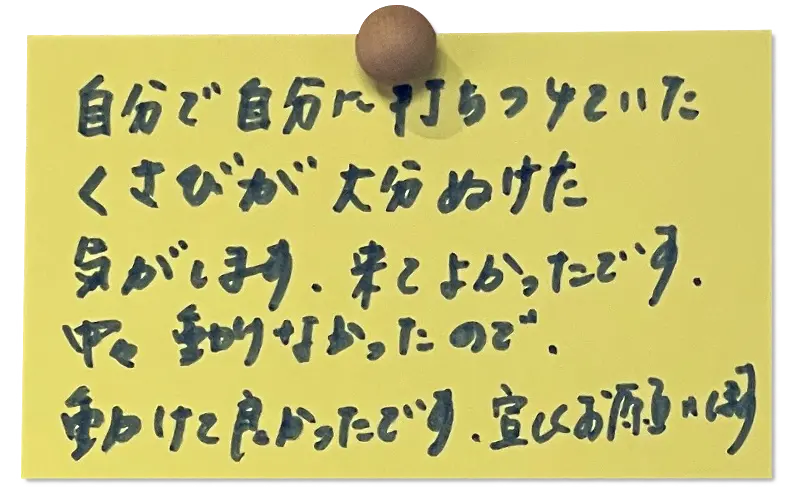 自分で自分に打ちつけていた
くさびが大分ぬけた
気がします。来てよかったです。
中々動けなかったので、
動けて良かったです。宜しくお願いします